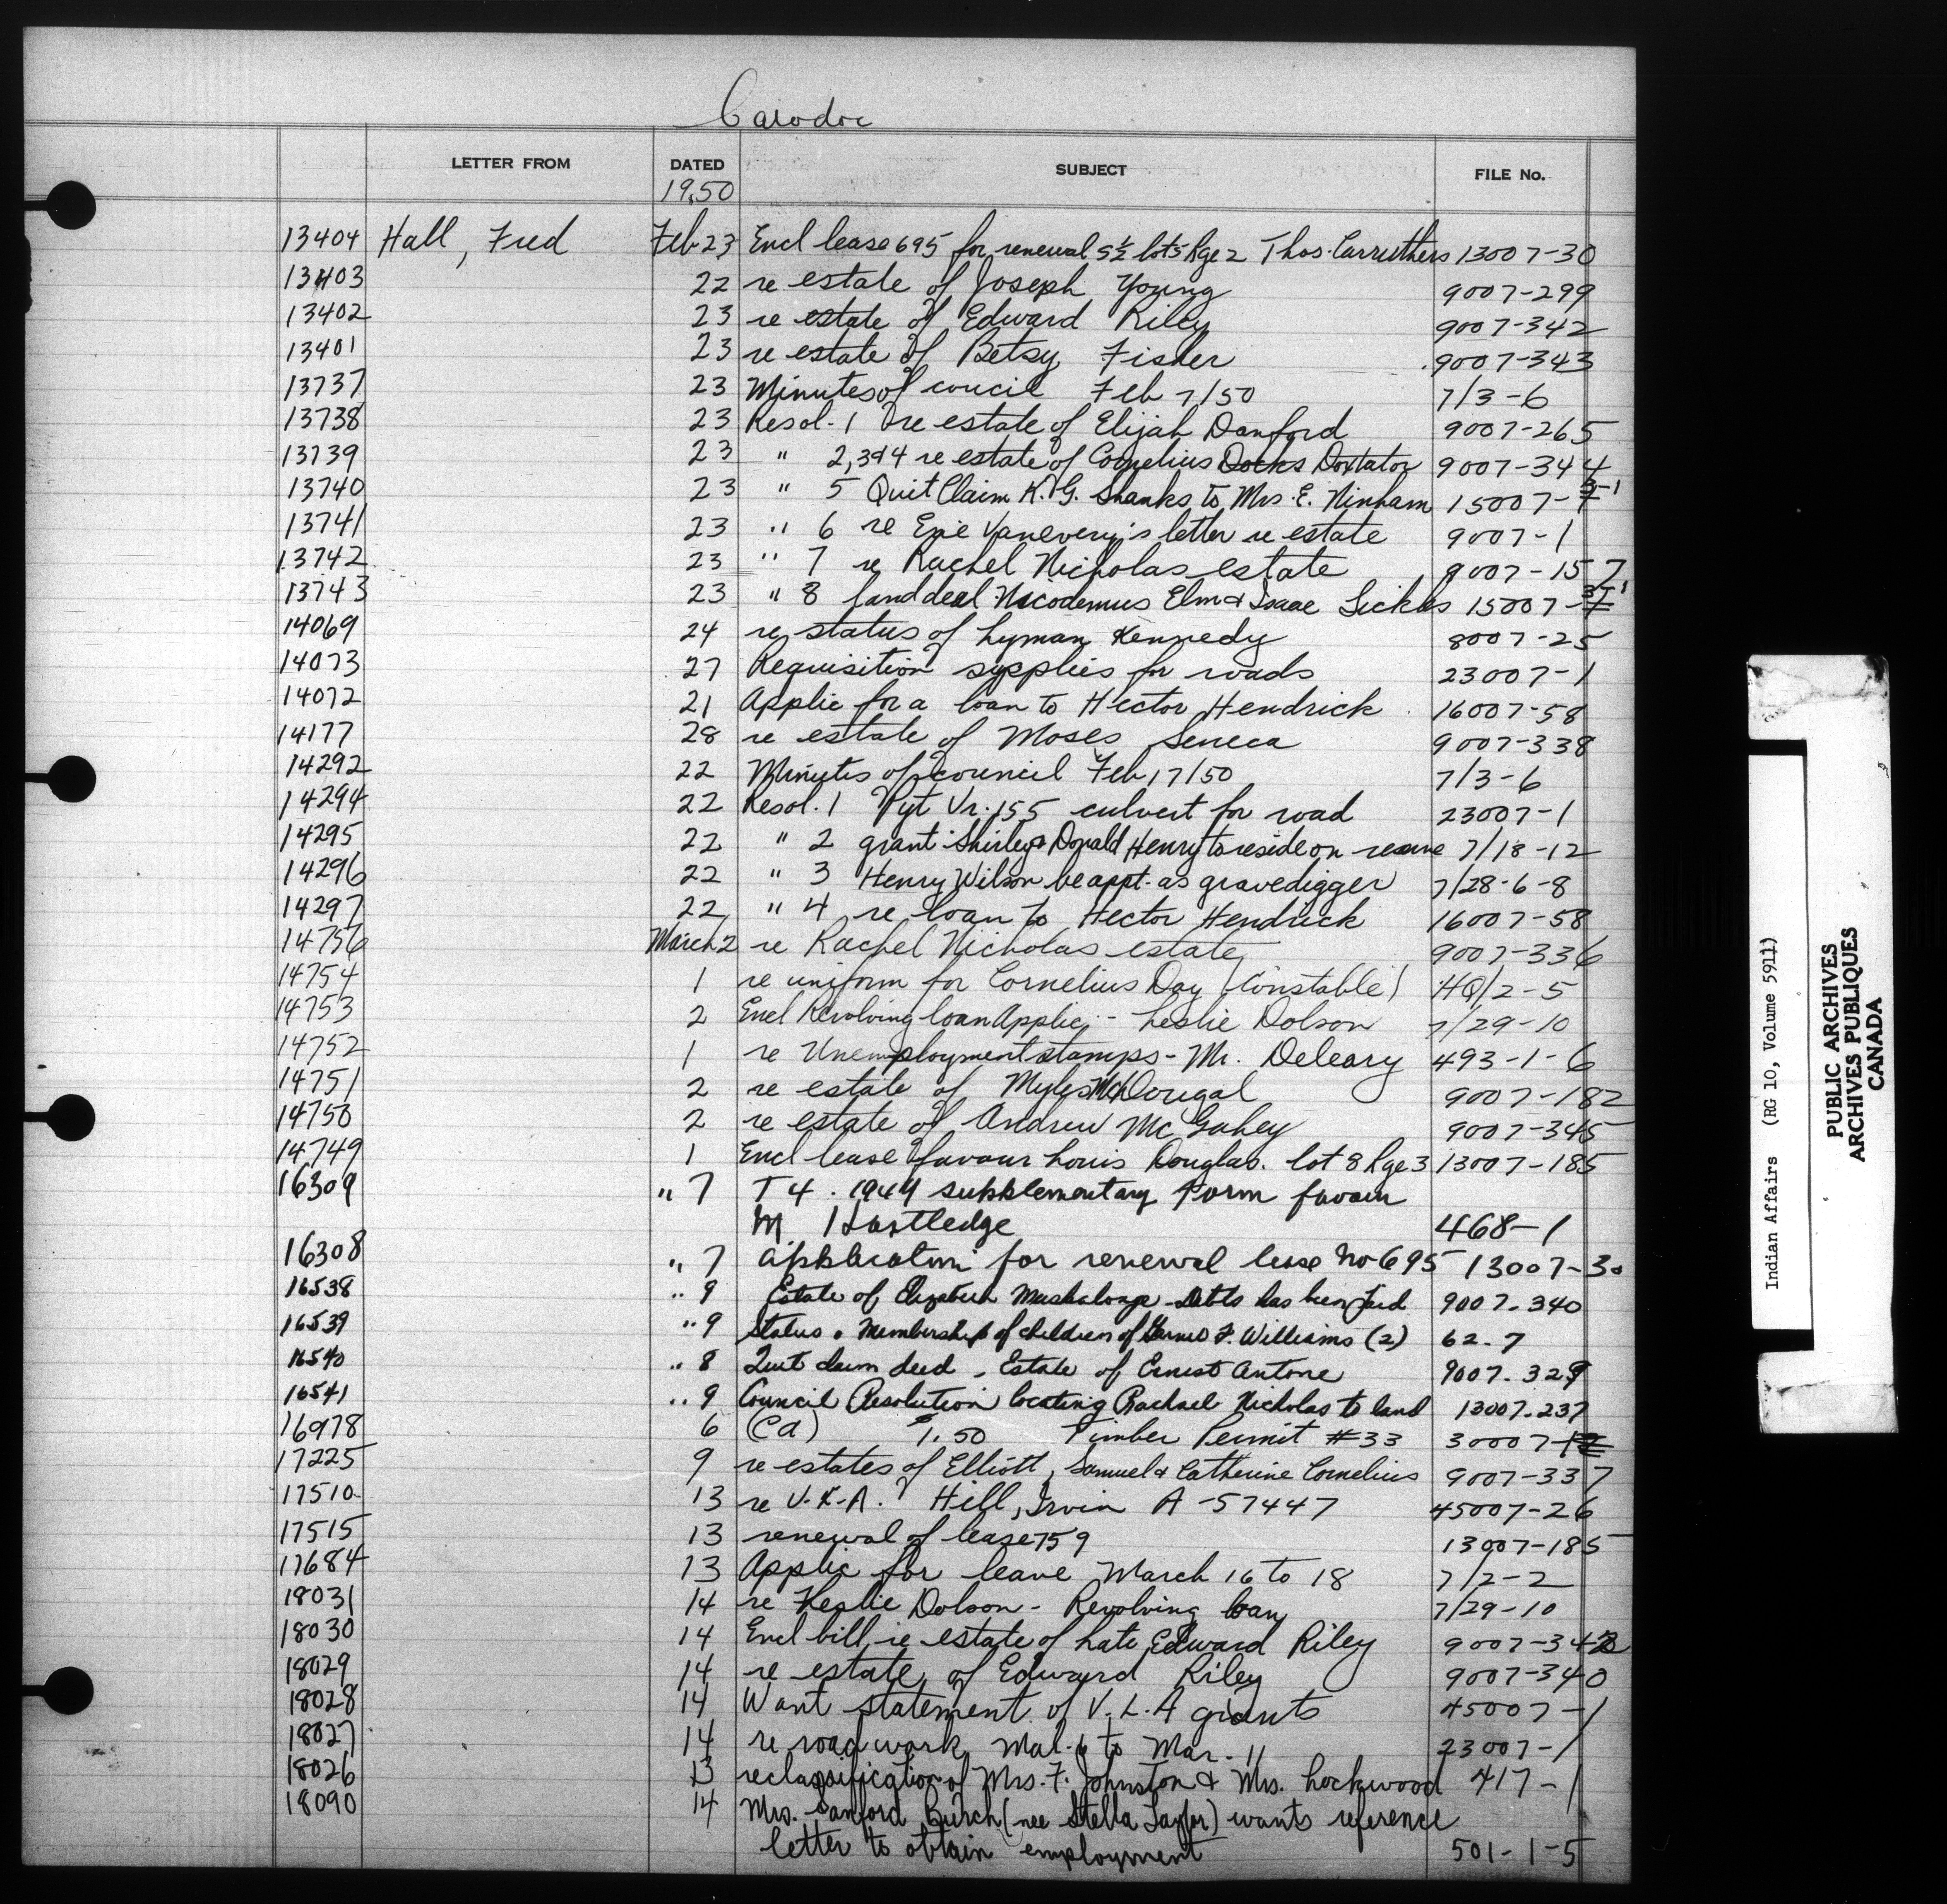 Caradoc
LETTER FROM DATED SUBJECT FILE No.
1950
13404 Hall, Fred Feb 23 Encl lease 695 for renewal S½ lot 5 Rge 2 Thos. Carruthers 13007-30
13403 22 re estate of Joseph Young 9007-299
13402 23 re estate of Edward Riley 9007-342
13401 23 re estate of Betsy Fisher 9007-343
13737 23 Minutes of concil Feb 7/50 7/3-6
13738 23 Resol. 1 re estate of Elijah Danford 9007-265
13739 23 " 2,3&4 re estate of Cornelius Docks Doxtator 9007-344
13740 23 " 5 Quit Claim K. G. Shanks to Mrs. E. Ninham 15007-
13741 23 " 6 re Vanevery's letter re estate 9007-1
13742 23 " 7 re Rachel Nicholas estate 9007-157
13743 23 " 8 land deal Nicodemus Elm & Isaac Sickles 15007-
14069 24 re status of Lyman Kennedy 8007-25
14073 27 Requisition supplies for roads 23007-1
14072 21 Applic for a loan to Hector Hendrick 16007-58
14177 28 re estate of Moses Seneca 9007-338
14292 22 Minutes of council Feb 17/50 7/3-6
14294 22 Resol. 1 Pyt Vr. 155 culvert for road 23007-1
14295 22 " 2 grant Shirley & Donald Henry to reside on reserve 7/18-12
14296 22 " 3 Henry Wilson be appt. as gravedigger 7/28-6-8
14297 22 " 4 re loan to Hector Hendrick 16007-58
14756 March 2 re Rachel Nicholas estate 9007-336
14754 1 re uniform for Cornelius Day (Constable) HQ/2-5
14753 2 Encl Revolving loan Applic. - Leslie Dolson 7/29-10
14752 1 re Unemployment stamps - Mr. Deleary 493-1-6
14751 2 re estate of Myles McDougal 9007-182
14750 2 re estate of Andrew McGahey 9007-345
14749 1 Encl lease favour Louis Douglas. lot 8 Rge 3 13007-185
16309 " 7 T4. 1949 supplementary Form favour
M Hartledge 468-1
16308 " 7 application for renewal lease No 695 13007-30
16538 " 9 Estate of Elizabeth Maskalonge - Debts has been paid 9007-340
16539 " 9 Status & Membership of children of F. Williams (2) 62-7
16540 " 8 Quit claim deed - Estate of Ernest Antone 9007-329
16541 " 9 Council Resolution locating Rachael Nicholas to land 13007-237
16978 6 (Cd) 1.50 Timber Permit #33 30007-
17225 9 re estates of Elliott, Samuel & Catherine Cornelius 9007-337
17510 13 re V.L.A. Hill, Irvin A-57447 45007-26
17515 13 renewal of lease 759 13007-185
17684 13 Applic for leave March 16 to 18 7/2-2
18031 14 re Leslie Dolson - Revolving loan 7/29-10
18030 14 Encl bill, re estate of Late Edward Riley 9007-342
18029 14 re estate of Edward Riley 9007-340
18028 14 Want statement of V.L.A grants 45007-1
18027 14 re road work Mar. 6 to Mar. 11 23007-1
18026 13 reclassification of Mrs. F. Johnston & Mrs. Lockwood 417-1
18090 14 Mrs. Sanford Burch (nee Stella Taylor) wants reference
letter to obtain employment 501-1-5
Indian Affairs (RG 10, Volume 5911)
PUBLIC ARCHIVES
ARCHIVES PUBLIQUES
CANADA